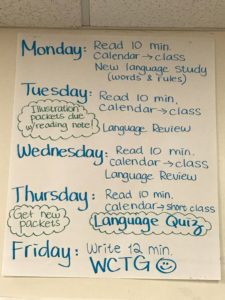 Monday: Read 10 min.
Calendar → class
New language study
(words & rules)
Tuesday: Read 10 min.
Calendar → class
Illustration
packets due
w/reading note!
Language Review
Wednesday: Read 10 min.
Calendar → class
Language Review
Thursday: Read 10 min.
Calendar → short class
Get new
packets
Language Quiz
Friday: Write 12 min.
WCTG ☺